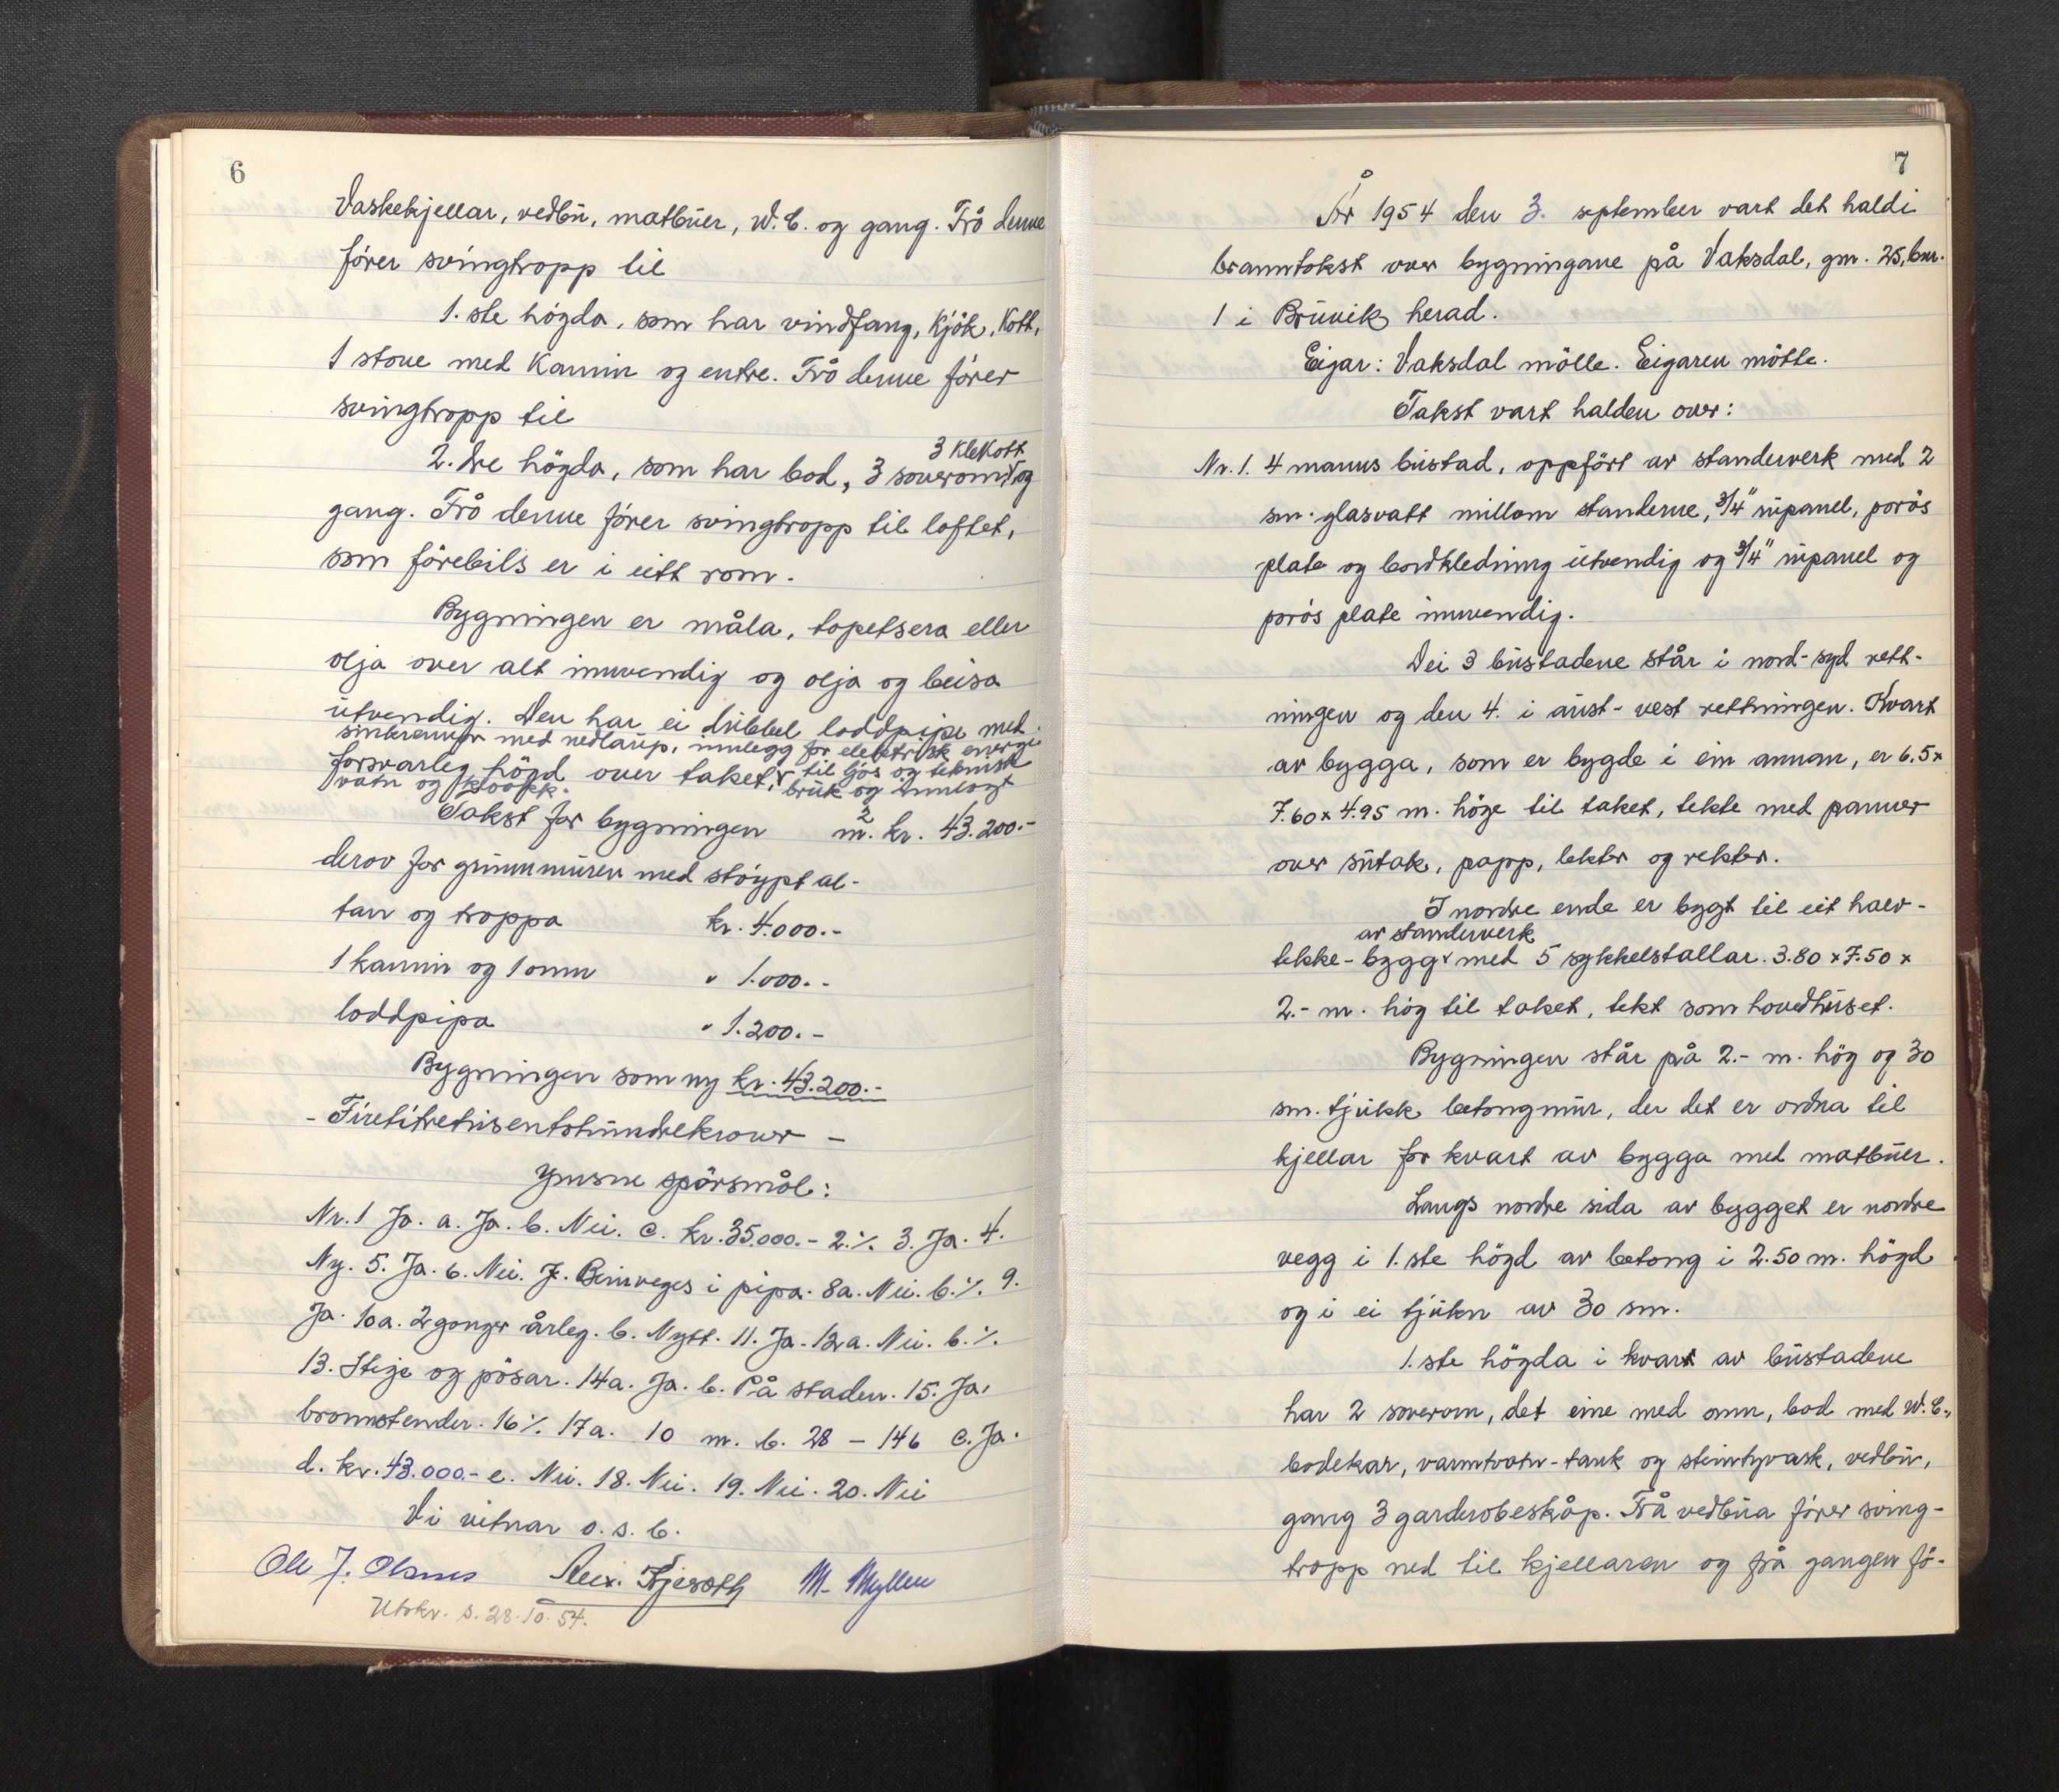 6
Vaskekjellar, vedbu, matbuer, W.C. og gang. Frå denne
fører svingtropp til
1.ste högda, som har vindfang, kjök, kott,
1 stove med kamin og entre. Frå denne fører
svingtropp til
3 klekott
2.dre högda, som har bod, 3 soverom, og
gang. Frå denne fører svingtropp til loftet,
som förebils er i eitt rom.
Bygningen er måla, tapetsera eller
olja over alt innvendig og olja og beisa
utvendig. Den har ei dubbel loddpipe med
sinkrenner med nedlaup, innlegg for elektrisk energi
forsvarleg högd over taket, til ljos og teknisk
vatn og kloakk. bruk og innlagt
Takst for bygningen m². kr. 43.200.-
derav for grunnmuren med støypt al-
tan og troppa kr. 4.000.-
1 kamin og 1 omn " 1.000.-
loddpipa " 1.200.-
Bygningen som ny kr. 43.200.-
- Firetitretusentohundrekroner -
Ymsne spörsmål:
Nr. 1 Ja. a. Ja. b. Nei. c. kr. 35.000.- 2.٪. 3. Ja. 4.
Ny. 5. Ja. 6. Nei. 7. Beinveges i pipa. 8a. Nei. b.٪. 9.
Ja. 10a. 2 gonger årleg. b. Nytt. 11. Ja. 12a. Nei. b.٪.
13. Stige og pösar. 14a. Ja. b. På staden. 15. Ja,
brannstender. 16٪. 17a. 10 m. b. 28 - 146 c. Ja.
d. kr. 43.000.- e. Nei. 18. Nei. 19. Nei. 20. Nei
Vi vitnar o.s.b.
Ole J. Olsnes Alex. Tjesoth M. Myllen
Utskr. s. 28.10.54.
7
År 1954 den 3. september vart det haldi
branntakst over bygningane på Vaksdal, gnr. 25, bnr.
1 i Bruvik herad.
Eigar: Vaksdal mölle. Eigaren mötte.
Takst vart halden over:
Nr. 1. 4 manns bustad, oppfört av standerverk med 2
sm. glasvatt millom standerne, 3/4" upanel, porös
plate og bordkledning utvendig og 3/4" upanel og
porös plate innvendig.
Dei 3 bustadene står i nord-syd rett-
ningen og den 4. i aust-vest rettningen. Kvart
av bygga, som er bygde i ein annan, er 6.5 x
7.60 x 4.95 m. höge til taket, tekte med panner
over sutak, papp, lekter og rekter.
I nordre ende er bygt til eit halv-
av standerverk
tekke-bygg med 5 sykkelstallar. 3.80 x 7.50 x
2.- m. hög til taket, tekt som hovedhuset.
Bygningen står på 2.- m. hög og 30
sm. tjukk betongmur, der det er ordna til
kjellar for kvart av bygga med matbuer.
Langs nordre sida av bygget er nordre
vegg i 1.ste högd av betong i 2.50 m. högd
og i ei tjukn av 30 sm.
1.ste högda i kvart av bustadene
har 2 soverom, det eine med omn, bod med W.C.,
badekar, varmtvatn-tank og steintyvask, vedbu,
gang 3 garderobeskåp. Frå vedbua förer sving-
tropp ned til kjellaren og frå gangen fö-